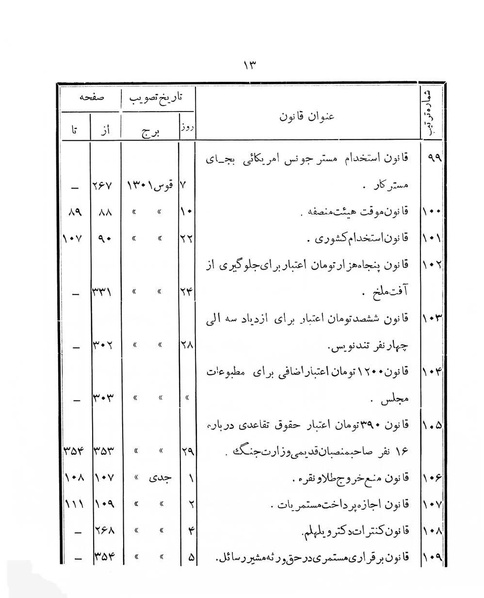 ۱۳
شماره ترتیب عنوان قانون تاریخ تصویب صفحه
روز برج از تا
۹۹ قانون استخدام مستر جونس امریکائی بجای
مسترکار . ۷ قوس ۱۳۰۱ ۲۶۷ —
۱۰۰ قانون موقت هیئت منصفه . ۱۰ » » ۸۸ ۸۹
۱۰۱ قانون استخدام کشوری . ۲۲ » » ۹۰ ۱۰۷
۱۰۲ قانون پنجاه هزار تومان اعتبار برای جلوگیری از
آفت ملخ . ۲۴ » » ۳۳۱ —
۱۰۳ قانون ششصد تومان اعتبار برای ازدیاد سه الی
چهار نفر تندنویس. ۲۸ » » ۳۰۲ —
۱۰۴ قانون ۱۲۰۰ تومان اعتبار اضافی برای مطبوعات
مجلس . » » » ۳۰۳ —
۱۰۵ قانون ۳۹۰ تومان اعتبار حقوق تقاعدی درباره
۱۶ نفر صاحبمنصبان قدیمی وزارت جنگ . ۲۹ » » ۳۵۳ ۳۵۴
۱۰۶ قانون منع خروج طلا و نقره . ۱ جدی » ۱۰۷ ۱۰۸
۱۰۷ قانون اجازه پرداخت مستمریات . ۲ » » ۱۰۹ ۱۱۱
۱۰۸ قانون کنترات دکتر ویلهلم. ۴ » » ۲۶۸ —
۱۰۹ قانون برقراری مستمری در حق ورثه مشیر رسائل. ۵ » » ۳۵۴ —